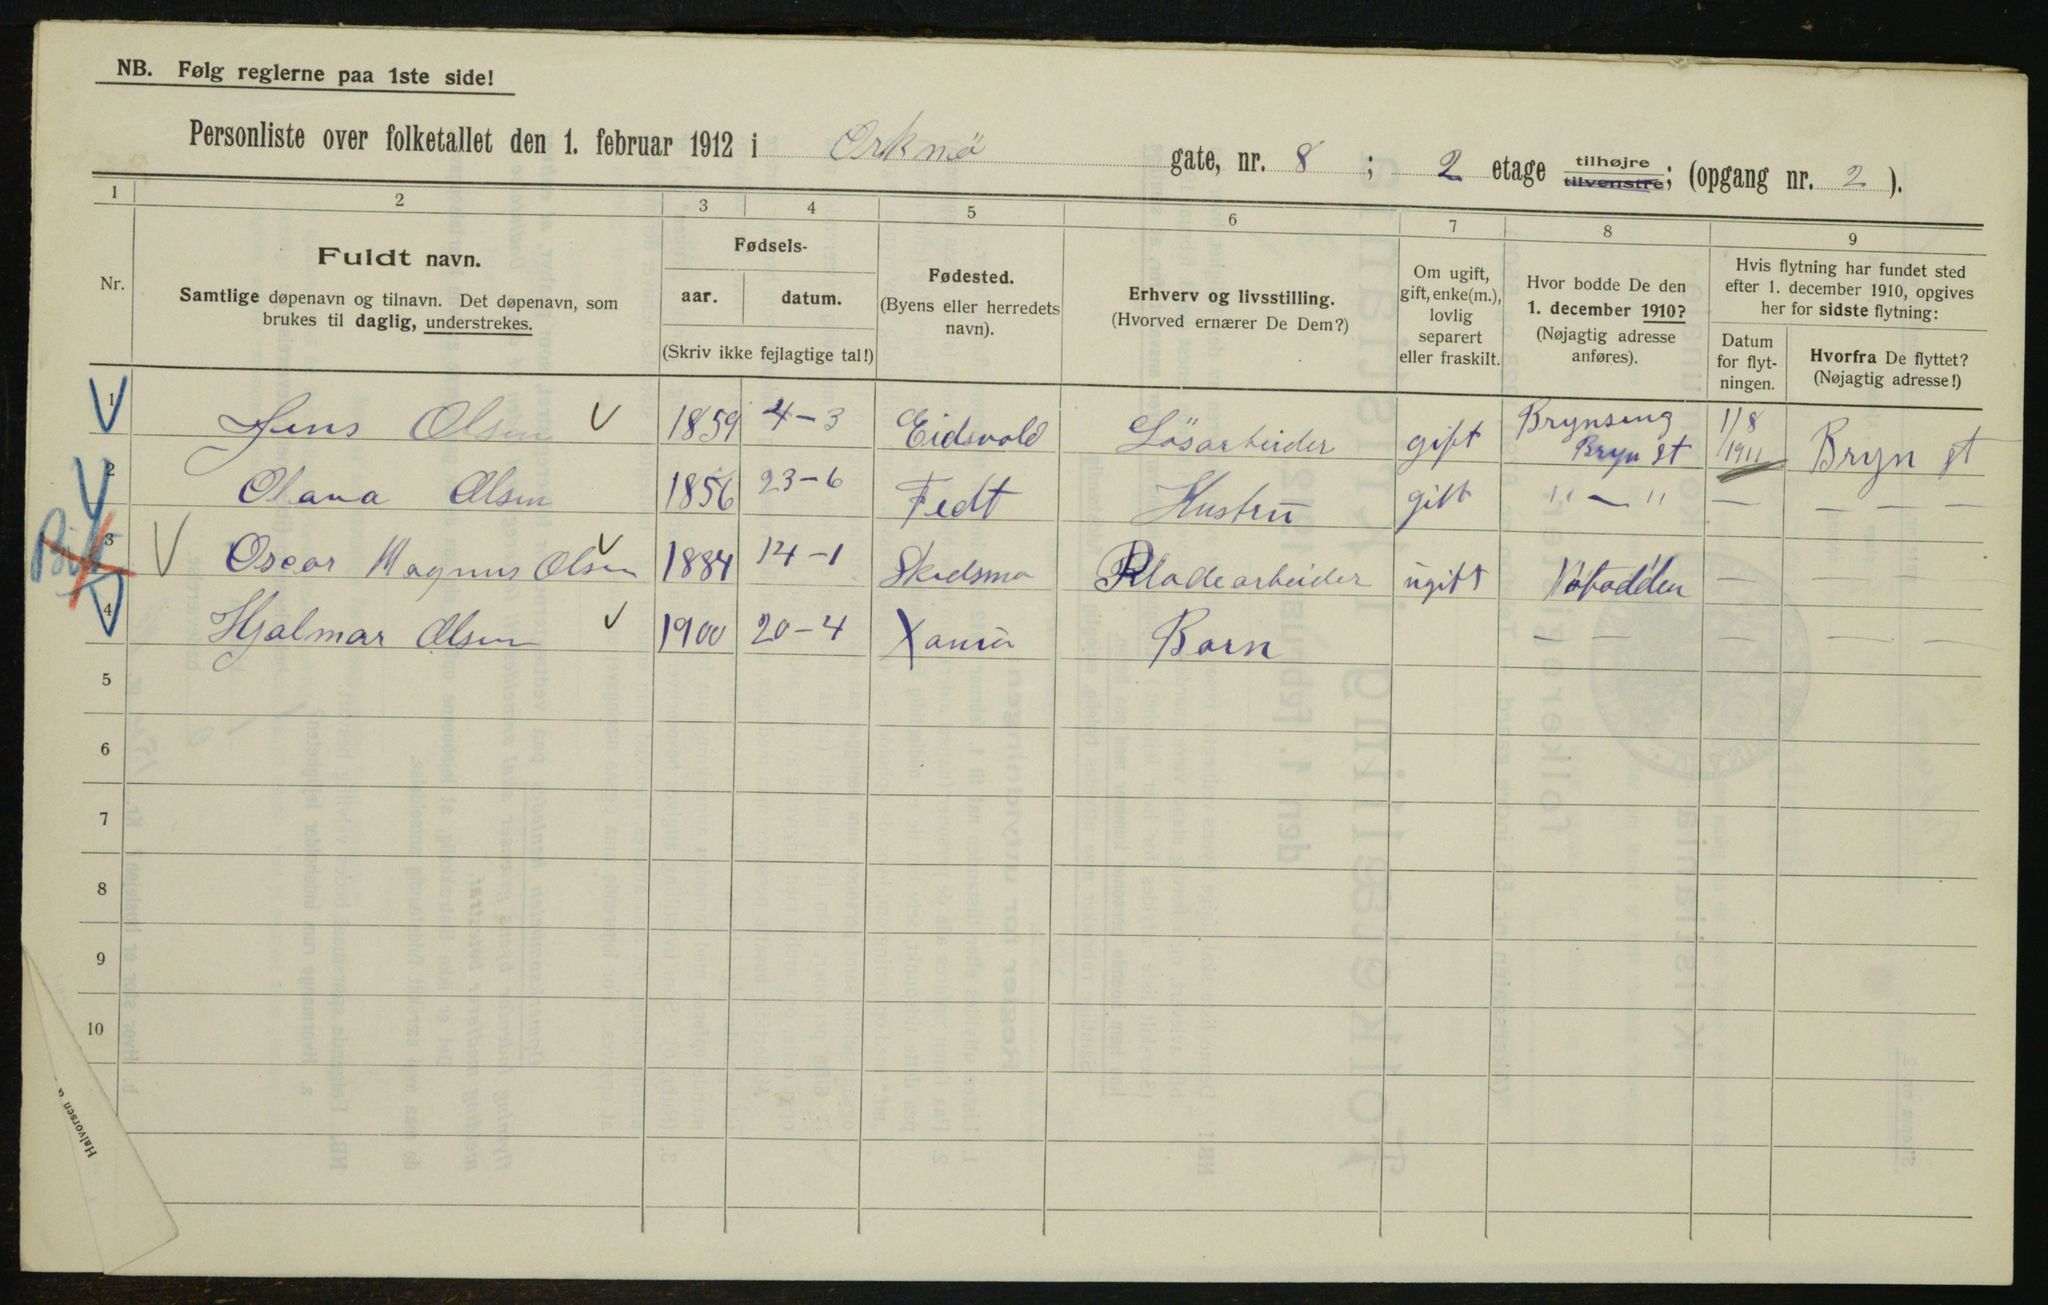 NB. Følg reglerne paa 1ste side!
Personliste over folketallet den 1. februar 1912 i Orknø gate, nr. 8 ; 2 etage tilhøjre tilvenstre; (opgang nr. 2 ).
1 2 3 4 5 6 7 8 9
Nr.
Fuldt navn.
Samtlige døpenavn og tilnavn. Det døpenavn, som
brukes til daglig, understrekes.
Fødsels-
aar. datum.
(Skriv ikke fejlagtige tal!)
Fødested.
(Byens eller herredets
navn).
Erhverv og livsstilling.
(Hvorved ernærer De Dem?)
Om ugift,
gift, enke(m.),
lovlig
separert
eller fraskilt.
Hvor bodde De den
1. december 1910?
(Nøjagtig adresse
anføres).
Hvis flytning har fundet sted
efter 1. december 1910, opgives
her for sidste flytning:
Datum
for flyt-
ningen.
Hvorfra De flyttet?
(Nøjagtig adresse!)
1 Jens Olsen 1859 4-3 Eidsvold Løsarbeider gift Brynseng Bryn st 1/8 1911 Bryn st
2 Olava Olsen 1856 23-6 Fedt Hustru gift " — " — — — —
3 Oscar Magnus Olsen 1884 14-1 Skedsmo Pladearbeider ugift Notodden — — —
4 Hjalmar Olsen 1900 20-4 Barn — — — — —
5
6
7
8
9
10
Halvorsen &